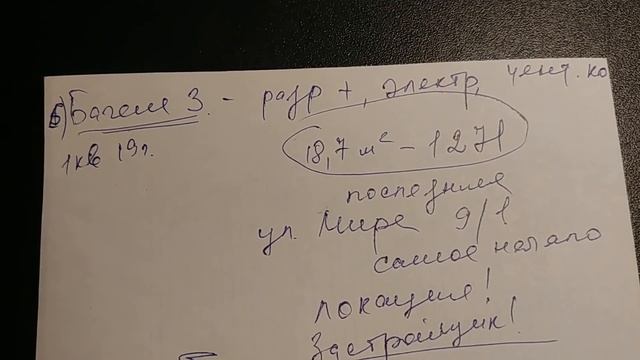 б) Багели 3. - разр +, электр, цент. ко
1 кв 19 г.
18,7 м² - 1271
последняя
ул. Мира 9/1
самое начало
локация!
Застройщик!